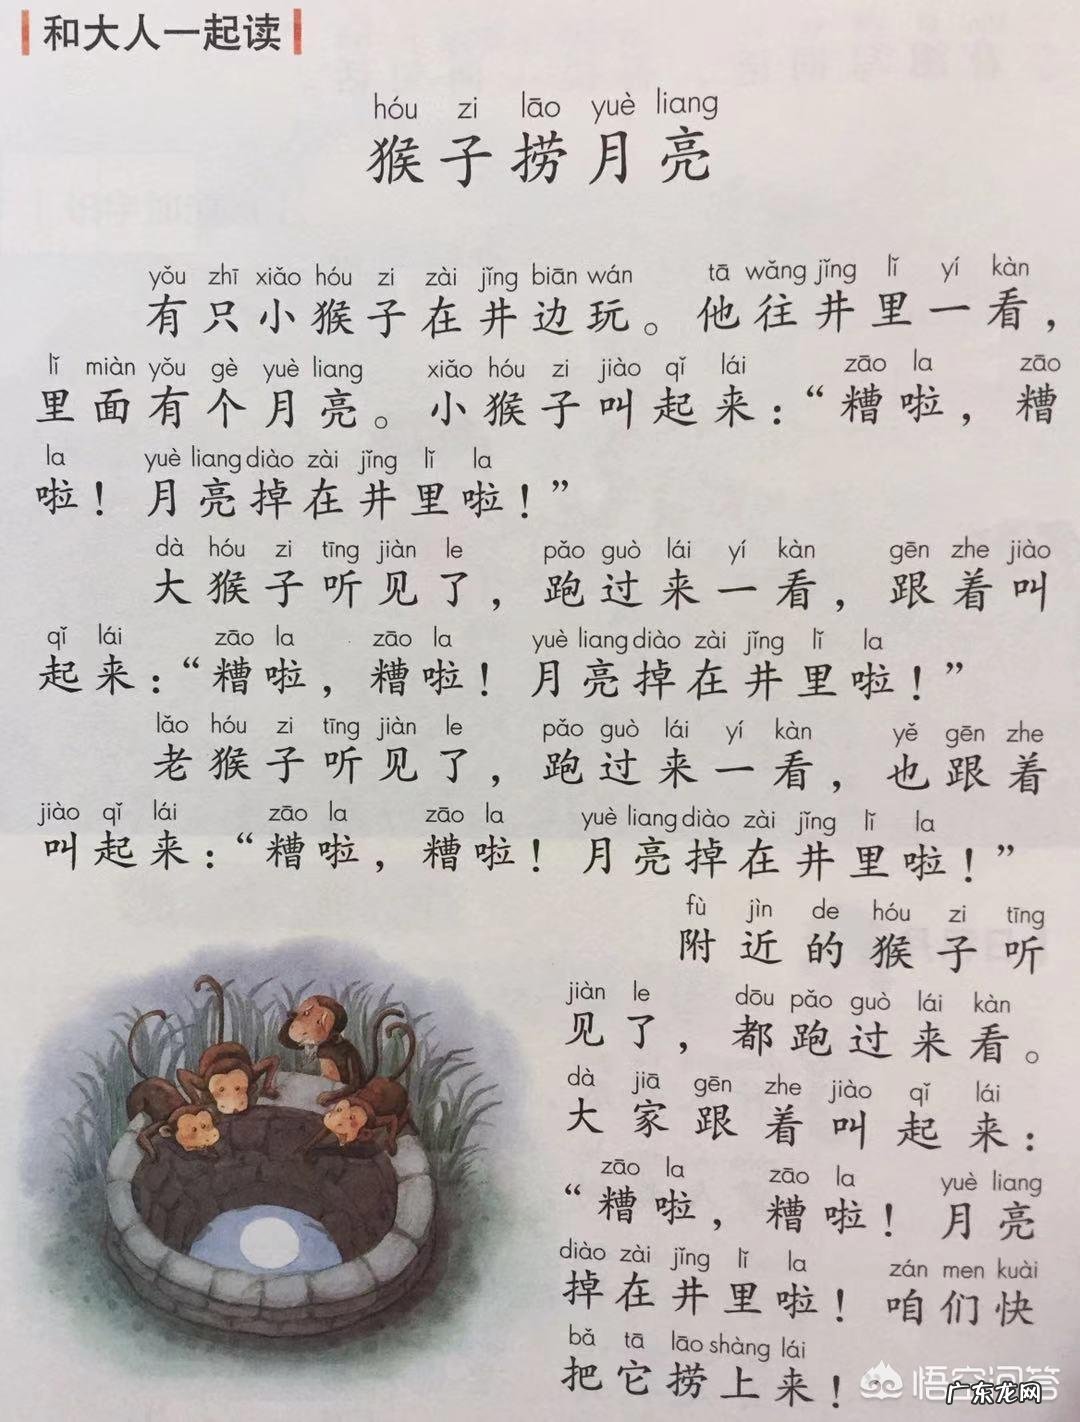 和大人一起读
hóu zi lāo yuè liang
猴子捞月亮
yǒu zhī xiǎo hóu zi zài jǐng biān wán tā wǎng jǐng lǐ yí kàn
有只小猴子在井边玩。他往井里一看，
lǐ miàn yǒu gè yuè liang xiǎo hóu zi jiào qǐ lái zāo la zāo
里面有个月亮。小猴子叫起来：“糟啦，糟
la yuè liang diào zài jǐng lǐ la
啦！月亮掉在井里啦！”
dà hóu zi tīng jiàn le pǎo guò lái yí kàn gēn zhe jiào
大猴子听见了，跑过来一看，跟着叫
qǐ lái zāo la zāo la yuè liang diào zài jǐng lǐ la
起来：“糟啦，糟啦！月亮掉在井里啦！”
lǎo hóu zi tīng jiàn le pǎo guò lái yí kàn yě gēn zhe
老猴子听见了，跑过来一看，也跟着
jiào qǐ lái zāo la zāo la yuè liang diào zài jǐng lǐ la
叫起来：“糟啦，糟啦！月亮掉在井里啦！”
fù jìn de hóu zi tīng
附近的猴子听
jiàn le dōu pǎo guò lái kàn
见了，都跑过来看。
dà jiā gēn zhe jiào qǐ lái
大家跟着叫起来：
zāo la zāo la yuè liang
“糟啦，糟啦！月亮
diào zài jǐng lǐ la zán men kuài
掉在井里啦！咱们快
bǎ tā lāo shàng lái
把它捞上来！
悟空问答
广东龙网